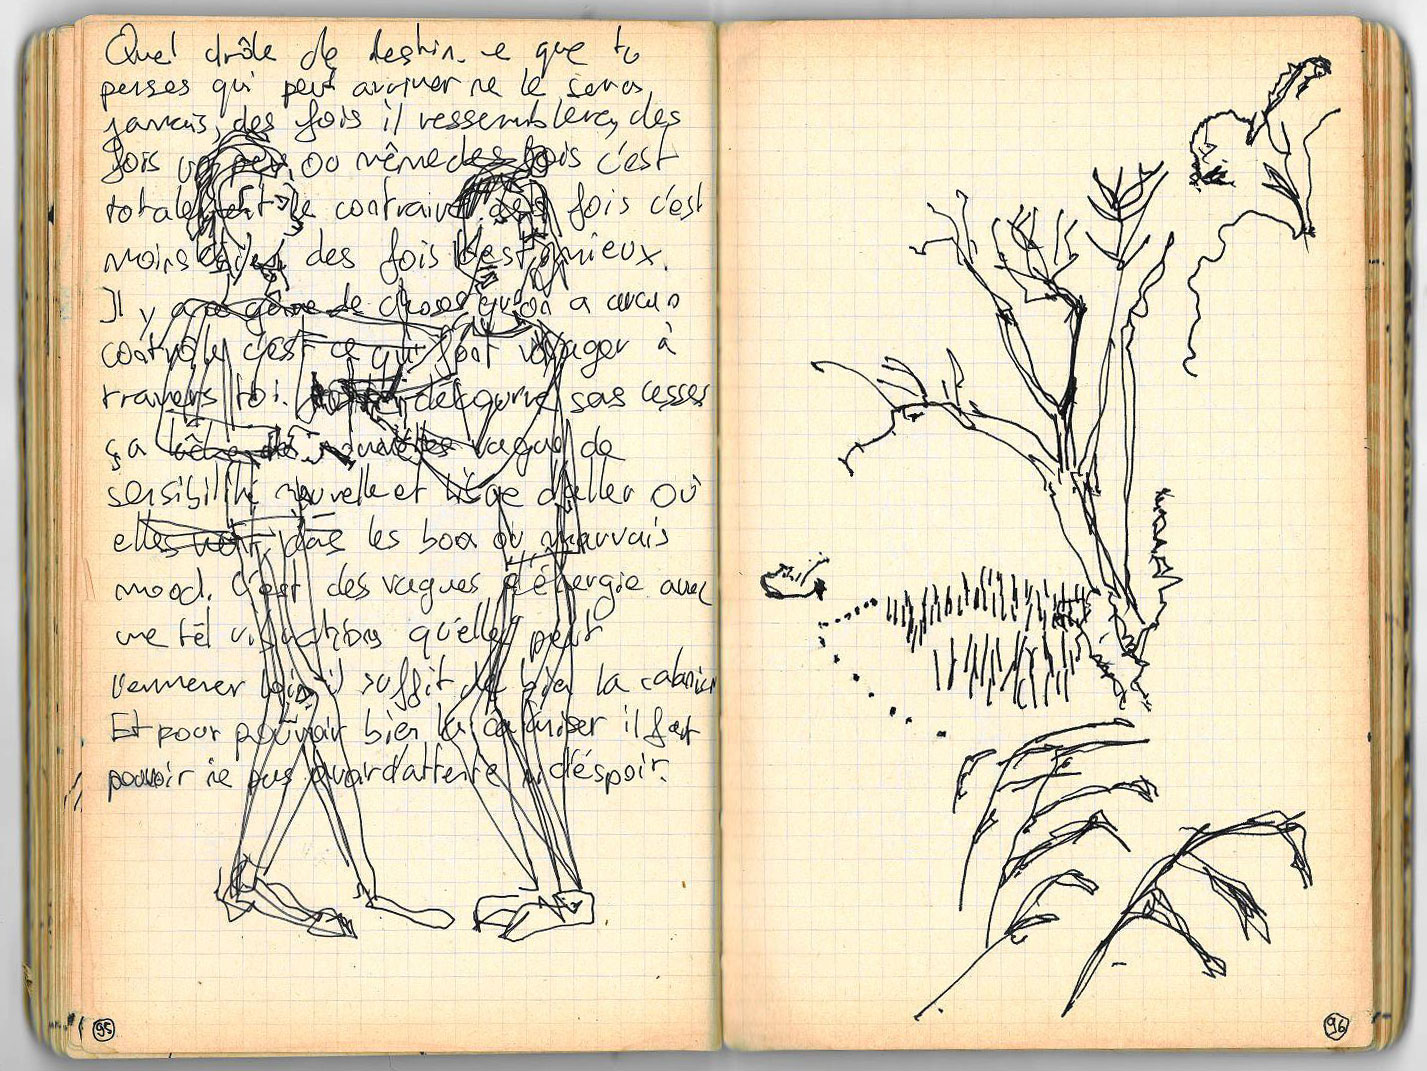 Quel drôle de destin. ce que tu
penses qui peut arriver ne le seras
jamais, des fois il ressemblera, des
fois un peu ou même des fois c'est
totalement le contraire, des fois c'est
moins bien des fois c'est mieux.
Il y a de choses qu'on a aucun
contrôle c'est ce qui font voyager à
travers toi. découvre sas cesses
ça de nouvelles vague de
sensibilité nouvelle et d'aller où
elles vont, das les bon ou mauvais
mood. C'est des vagues d'énergie avec
une tel vibrations qu'elle peut
t'emmener loin il suffit de bien la
Et pour pouvoir bien la canaliser il faut
pouvoir ne pas avoir d'attente ni d'éspoir.
95
96